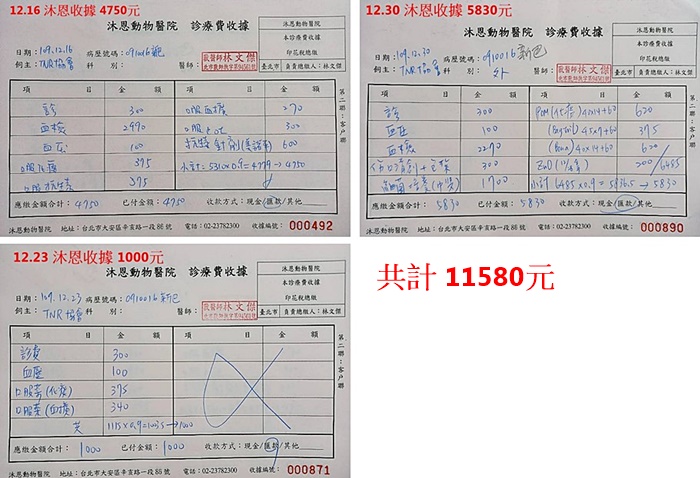 12.16 沐恩收據 4750元
沐恩動物醫院 診療費收據
沐恩動物醫院
本診療費收據
印花稅總繳
臺北市 負責總繳人：林文傑
日期：109.12.16 病歷號碼：0910016
飼主：TNR協會 科 別： 醫師：獸醫師林文傑
項 目 金 額 項 目 金 額
診 300 270
血檢 2990 300
血压 100 600
375 小計=5310x0.9=4779→4750
口服抗生素 375
應繳金額合計：4750 已付金額：4750 收款方式：現金/匯款/其他
沐恩動物醫院 地址：台北市大安區辛亥路一段86號 電話：02-23782300 收據編號：000492
第二聯：客戶聯
12.30 沐恩收據 5830元
沐恩動物醫院 診療費收據
沐恩動物醫院
本診療費收據
印花稅總繳
臺北市 負責總繳人：林文傑
日期：109.12.30 病歷號碼：0910016
飼主：TNR協會 科 別：外 醫師：獸醫師林文傑
項 目 金 額 項 目 金 額
診 300 620
血压 100 375
血檢 2290 620
300 200/6485
1900 小計 6485x0.9=5836.5→5830
應繳金額合計：5830 已付金額：5830 收款方式：現金/匯款/其他
沐恩動物醫院 地址：台北市大安區辛亥路一段86號 電話：02-23782300 收據編號：000890
第二聯：客戶聯
12.23 沐恩收據 1000元
沐恩動物醫院 診療費收據
沐恩動物醫院
本診療費收據
印花稅總繳
臺北市 負責總繳人：林文傑
日期：109.12.23 病歷號碼：0910016
飼主：TNR協會 科 別： 醫師：獸醫師林文傑
項 目 金 額 項 目 金 額
診療 300
血壓 100
口服藥(化痰) 375
口服藥(血檢) 340
共 1115x0.9=1003.5→1000
應繳金額合計：1000 已付金額：1000 收款方式：現金/匯款/其他
沐恩動物醫院 地址：台北市大安區辛亥路一段86號 電話：02-23782300 收據編號：000871
第二聯：客戶聯
共計 11580元